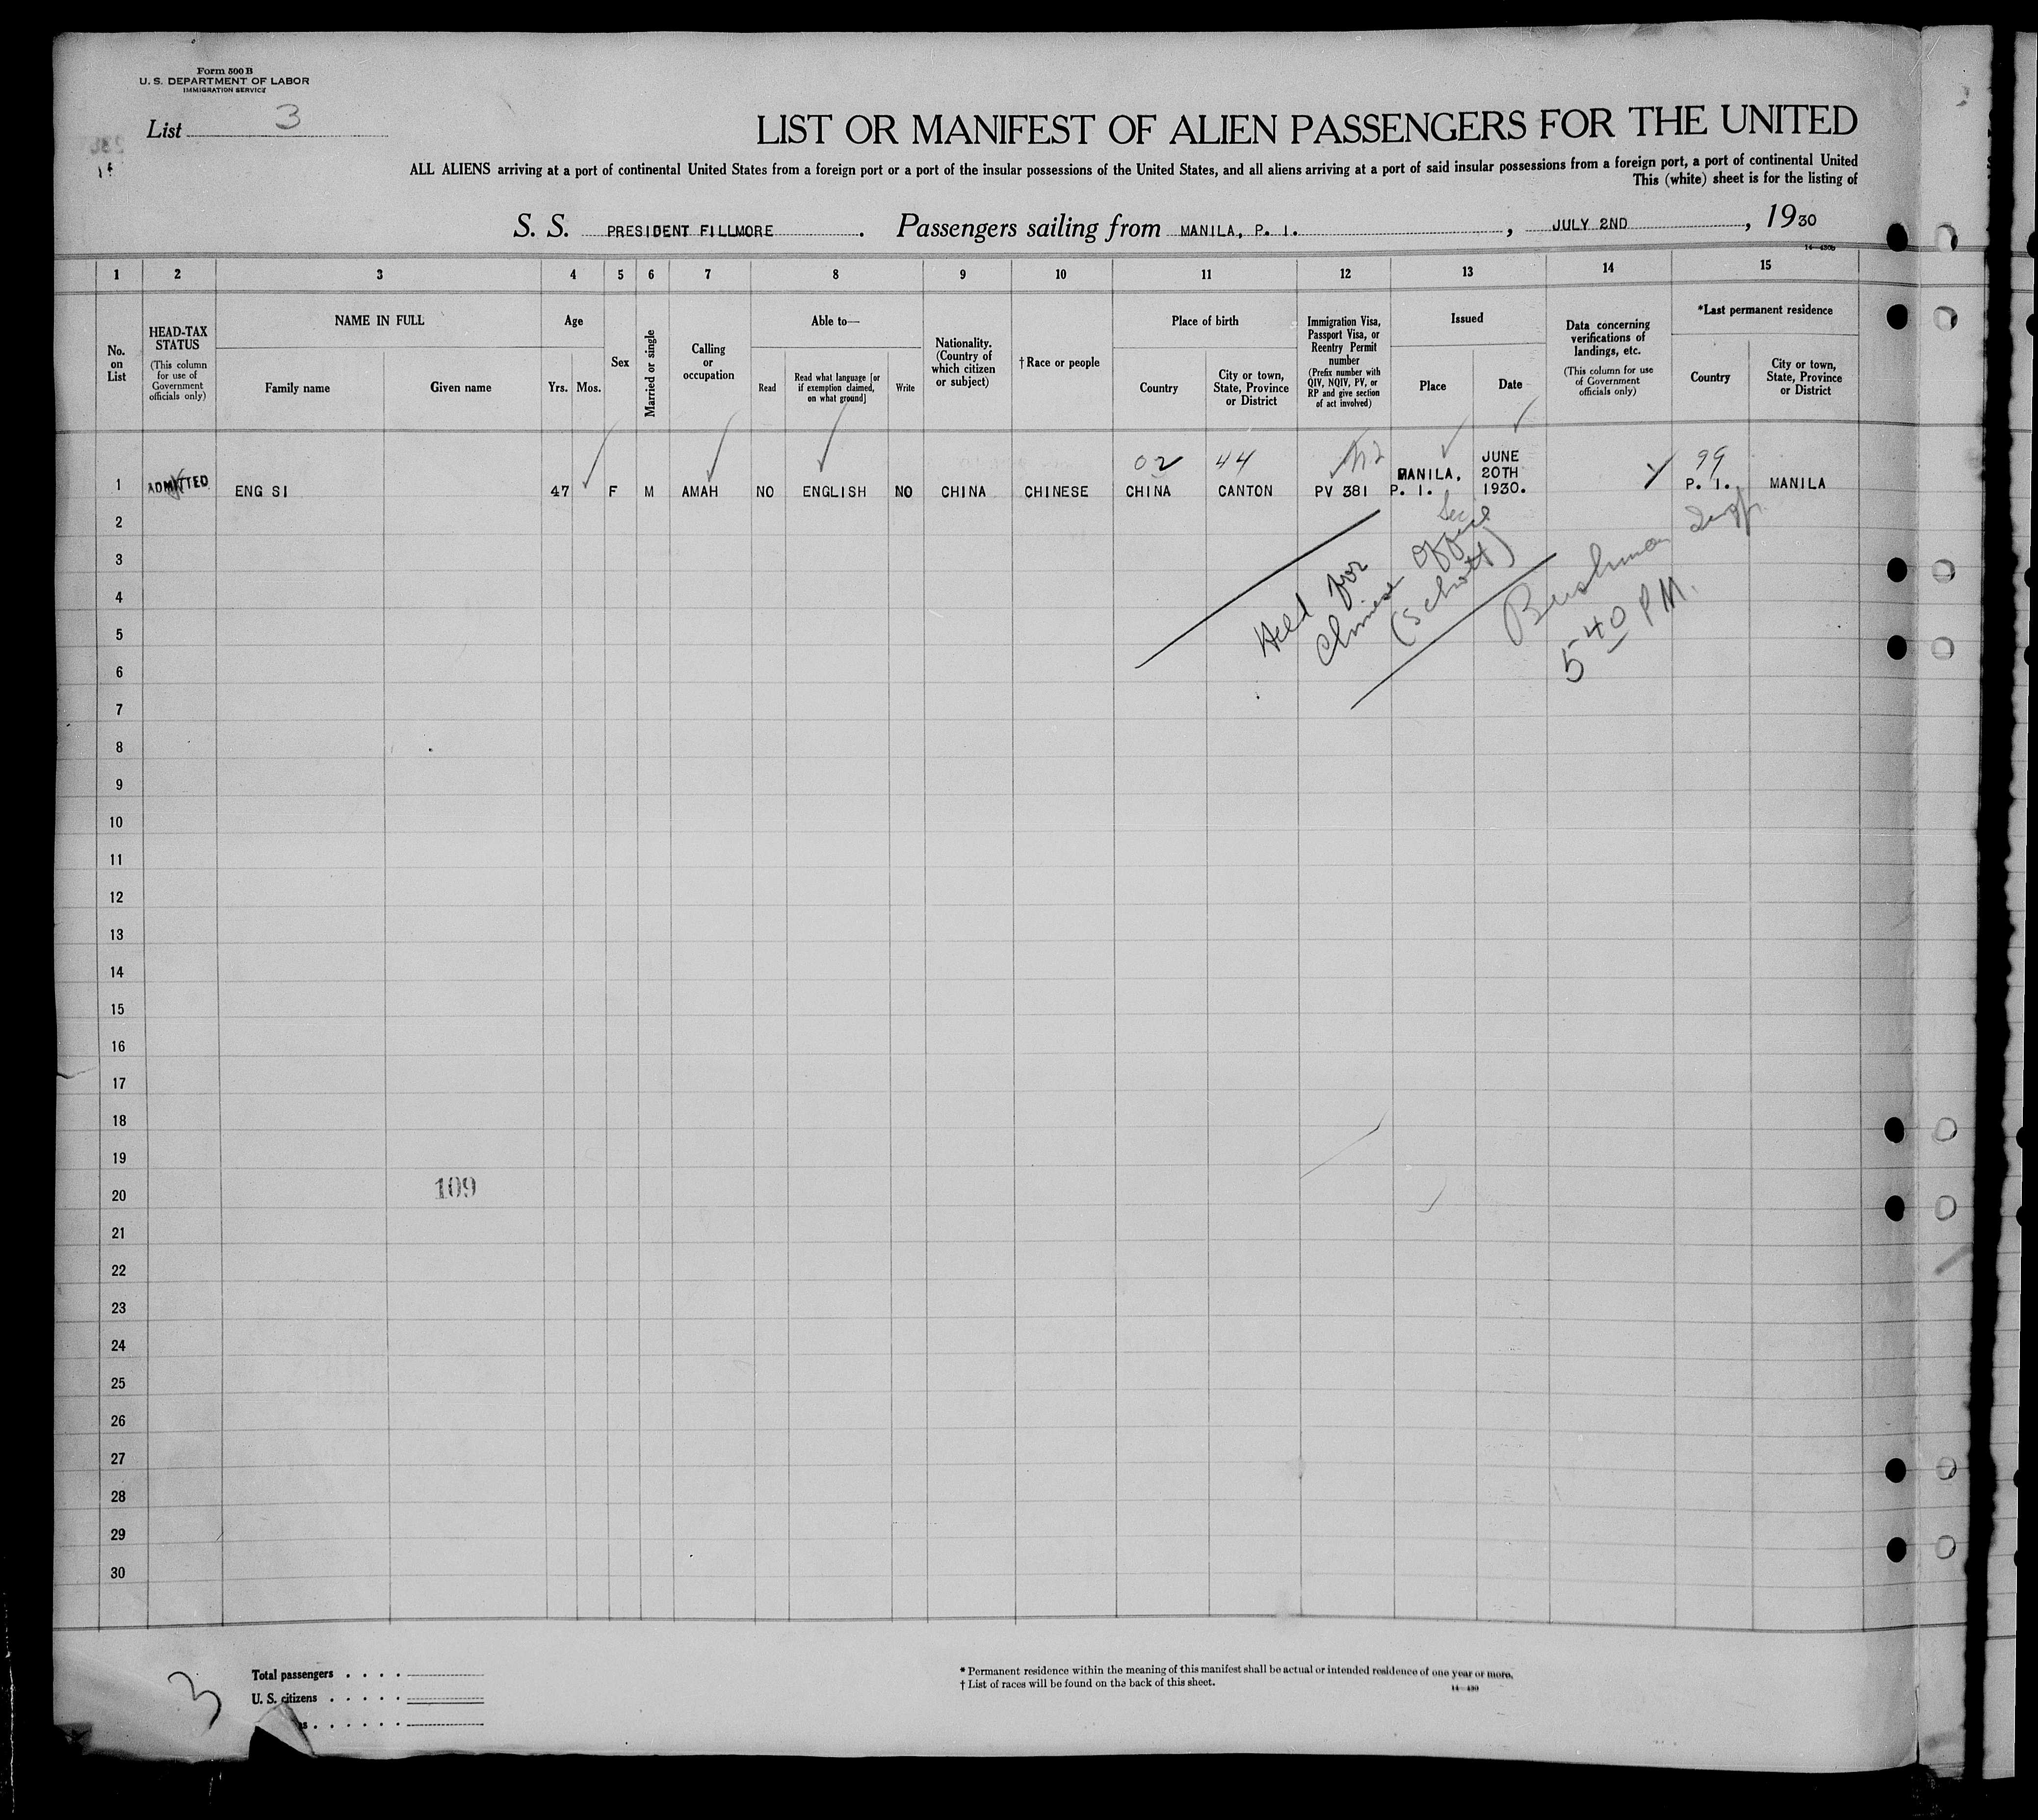 Form 500 B
U. S. DEPARTMENT OF LABOR
IMMIGRATION SERVICE
List 3
LIST OR MANIFEST OF ALIEN PASSENGERS FOR THE UNITED
ALL ALIENS arriving at a port of continental United States from a foreign port or a port of the insular possessions of the United States, and all aliens arriving at a port of said insular possessions from a foreign port, a port of continental United
This (white) sheet is for the listing of
S. S. PRESIDENT FILLMORE. Passengers sailing from MANILA, P. I., JULY 2ND, 1930
14—430b
1 2 3 4 5 6 7 8 9 10 11 12 13 14 15
No. on List
HEAD-TAX STATUS
(This column for use of Government officials only)
NAME IN FULL
Family name
Given name
Age
Yrs.
Mos.
Sex
Married or single
Calling or occupation
Able to—
Read
Read what language [or if exemption claimed, on what ground]
Write
Nationality. (Country of which citizen or subject)
†Race or people
Place of birth
Country
City or town, State, Province or District
Immigration Visa, Passport Visa, or Reentry Permit number
(Prefix number with QIV, NQIV, PV, or RP and give section of act involved)
Issued
Place
Date
Data concerning verifications of landings, etc.
(This column for use of Government officials only)
*Last permanent residence
Country
City or town, State, Province or District
02 44 99
1 ADMITTED ENG SI 47 F M AMAH NO ENGLISH NO CHINA CHINESE CHINA CANTON PV 381 MANILA, P. I. JUNE 20TH 1930. P. I. MANILA
Held for
Chinese Office
(Schott)
Bushman Insp.
5 40 P.M.
2
3
4
5
6
7
8
9
10
11
12
13
14
15
16
17
18
19
20
109
21
22
23
24
25
26
27
28
29
30
3
Total passengers
U. S. citizens
* Permanent residence within the meaning of this manifest shall be actual or intended residence of one year or more.
† List of races will be found on the back of this sheet.
14—430